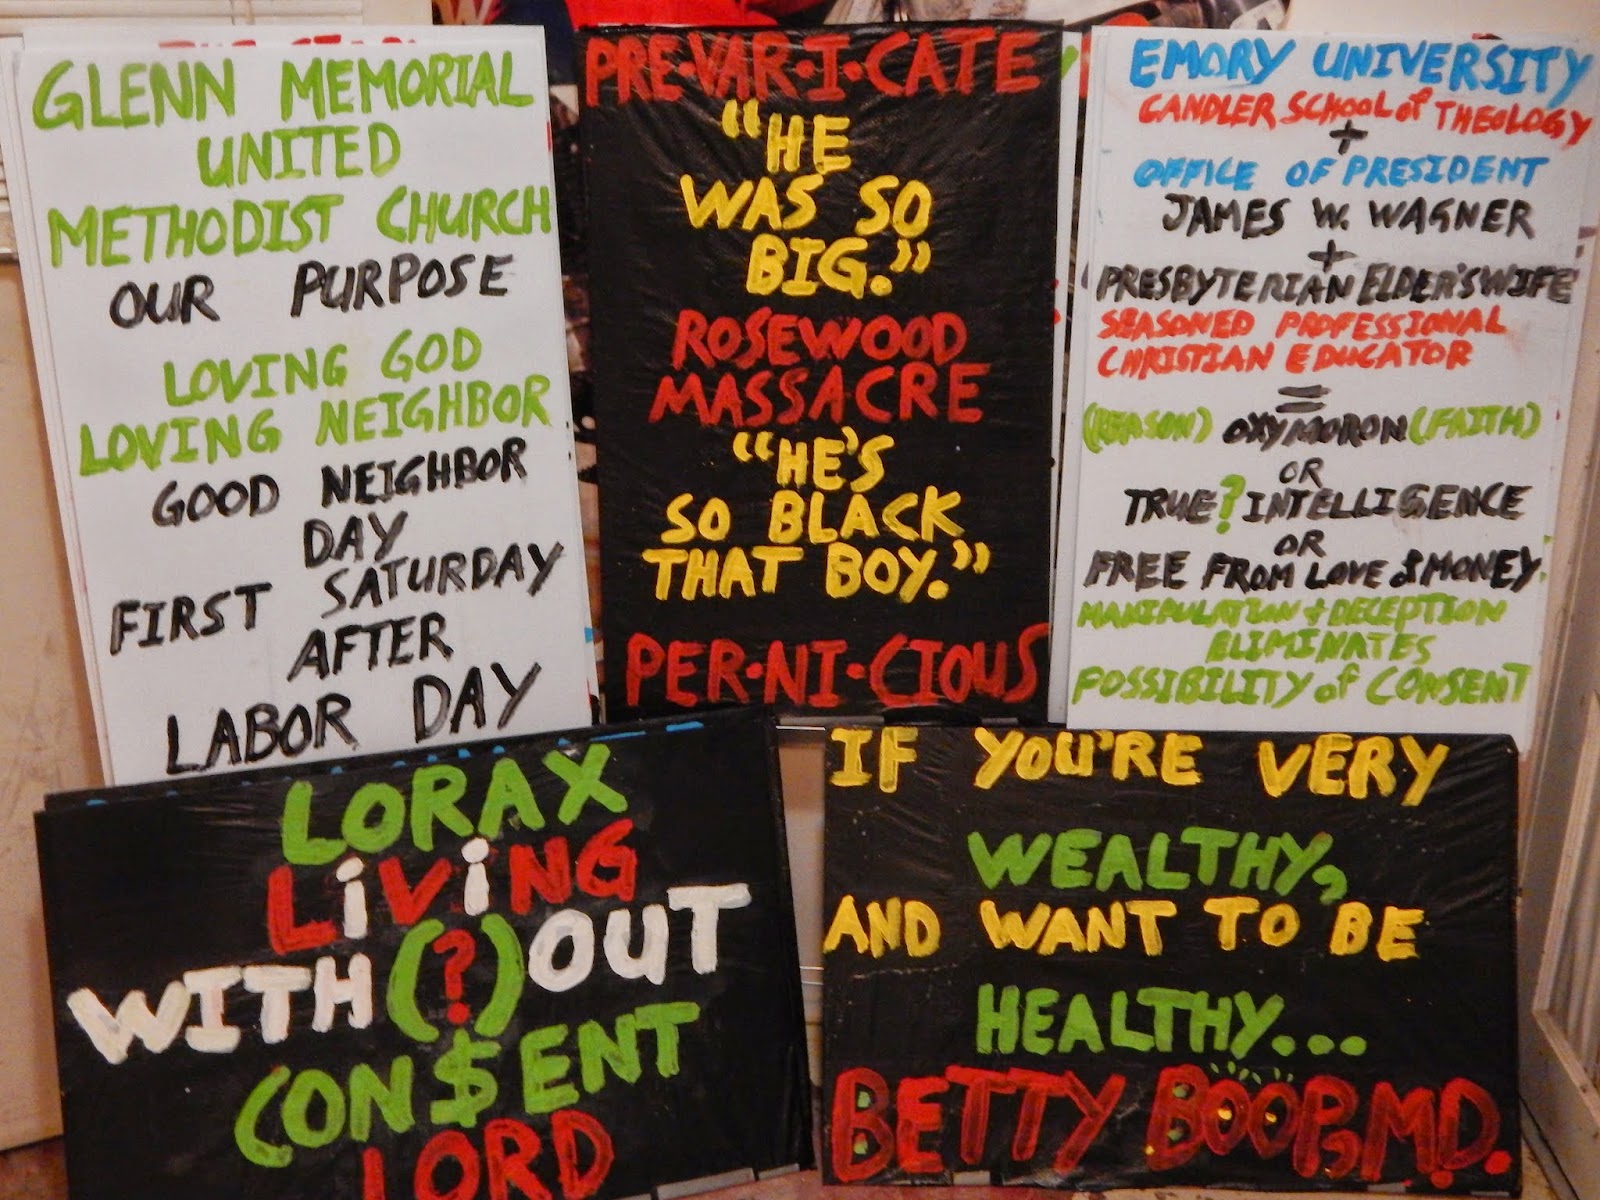 GLENN MEMORIAL
UNITED
METHODIST CHURCH
OUR PURPOSE
LOVING GOD
LOVING NEIGHBOR
GOOD NEIGHBOR
DAY
FIRST SATURDAY
AFTER
LABOR DAY
PRE•VAR•I•CATE
"HE
WAS SO
BIG."
ROSEWOOD
MASSACRE
"HE'S
SO BLACK
THAT BOY."
PER•NI•CIOUS
EMORY UNIVERSITY
CANDLER SCHOOL of THEOLOGY
+
OFFICE OF PRESIDENT
JAMES W. WAGNER
+
PRESBYTERIAN ELDER'S WIFE
SEASONED PROFESSIONAL
CHRISTIAN EDUCATOR
=
(REASON) OXYMORON (FAITH)
OR
TRUE? INTELLIGENCE
OR
FREE FROM LOVE of MONEY
MANIPULATION + DECEPTION
ELIMINATES
POSSIBILITY of CONSENT
LORAX
LiViNG
WITH(?)OUT
CON$ENT
LORD
IF YOU'RE VERY
WEALTHY,
AND WANT TO BE
HEALTHY...
BETTY BOOP, MD.